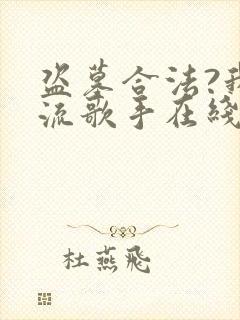 盗墓合法?我
流歌手在线
杜燕飛